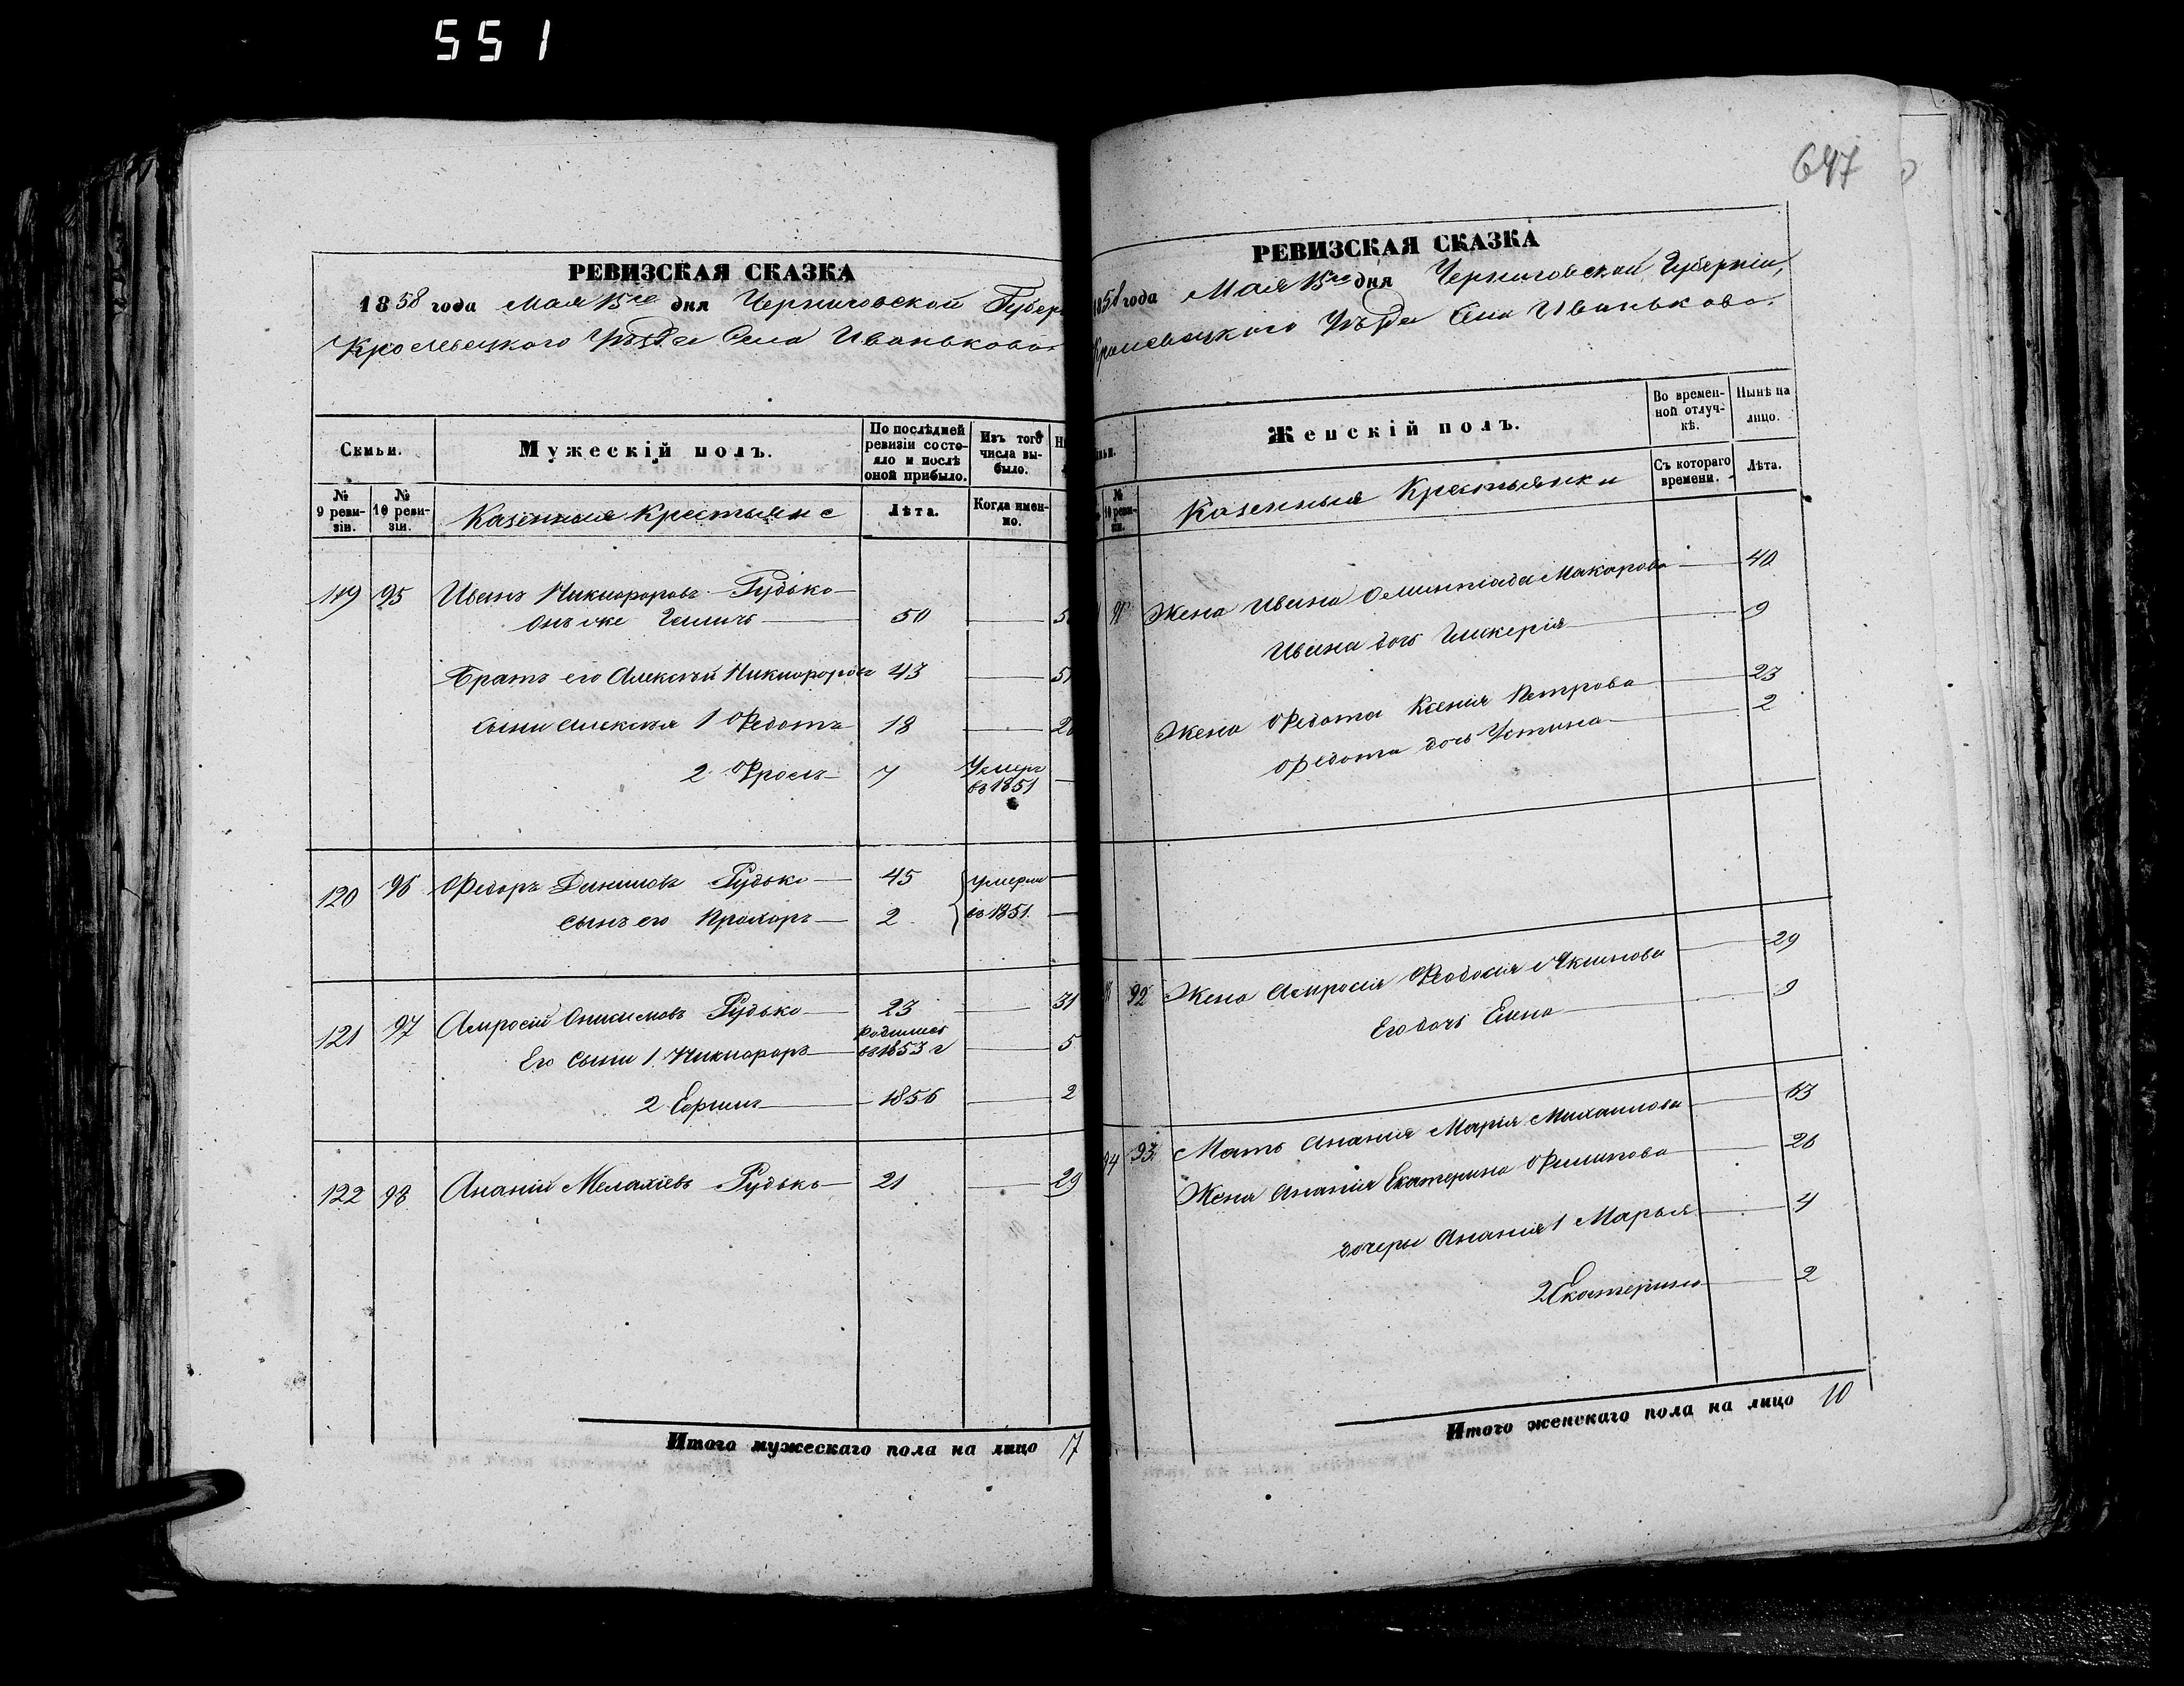 551
647
РЕВИЗСКАЯ СКАЗКА
1858 года Мая 15го дня Черниговской Губер
Кролевецкого Уѣзда Села Иванькова
Семьи.
Мужескій полъ.
По послѣдней ревизіи состояло и послѣ оной прибыло.
Изъ того числа выбыло.
№ 9 ревизіи.
№ 10 ревизіи.
Казенныя Крестьяне
Лѣта.
Когда именно.
119 95 Иванъ Никифоровъ Рудько
Онъ же 50
Братъ его Алексѣй Никифоровъ 43
сыни Алексѣя 1 Федотъ 18
2 Фролъ 7 Умеръ въ 1851
120 96 Федоръ Даниловъ Рудько 45 умерли
сынъ его Прохоръ 2 въ 1851
121 97 Амросій Онисимовъ Рудько 23 31
Его сыни 1 Никифоръ родился въ 1853 г 5
2 Ефимъ 1856 2
122 98 Ананій Мелахіевъ Рудько 21 29
Итого мужескаго пола на лицо 7
РЕВИЗСКАЯ СКАЗКА
1858 года Мая 15го дня Черниговской Губерніи,
Кролевецкого Уѣзда Села Иванькова
Женскій полъ.
Во временной отлучкѣ.
Нынѣ на лицо.
№ 10 ревизіи.
Казенныя Крестьянки
Съ котораго времени.
Лѣта.
Жена Ивана Олимпіада Макарова 40
Ивана дочь Гликерія 9
Жена Федота Ксенія Петрова 23
Федота дочь Устина 2
92 Жена Амросія Феодосія Якимова 29
Его дочь Елена 9
93 Мать Ананія Марія Михаилова 63
Жена Ананія Екатерина Филипова 26
дочери Ананія 1 Марья 4
2 Екатерина 2
Итого женскаго пола на лицо 10